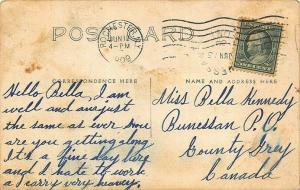 POST CARD
ROCHESTER, N.Y.
JUN 12
4-PM
1909
CORRESPONDENCE HERE
NAME AND ADDRESS HERE
Hello Bella, I am
well and am just
the same as ever. How
are you getting along
It's a fine day here
and I hate to work
a carry very heavy.
Miss Bella Kennedy
Bunessan P.O.
County Grey
Canada